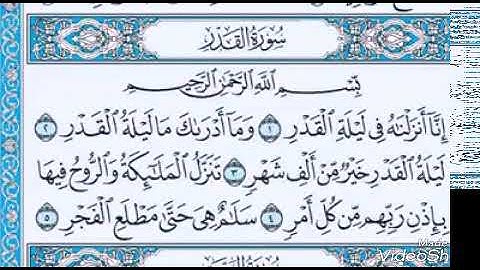 سُورَةُ القَدْرِ
بِسْمِ اللَّهِ الرَّحْمَٰنِ الرَّحِيمِ
إِنَّا أَنزَلْنَٰهُ فِي لَيْلَةِ الْقَدْرِ ١ وَمَا أَدْرَىٰكَ مَا لَيْلَةُ الْقَدْرِ ٢
لَيْلَةُ الْقَدْرِ خَيْرٌ مِّنْ أَلْفِ شَهْرٍ ٣ تَنَزَّلُ الْمَلَٰٓئِكَةُ وَالرُّوحُ فِيهَا
بِإِذْنِ رَبِّهِم مِّن كُلِّ أَمْرٍ ٤ سَلَٰمٌ هِيَ حَتَّىٰ مَطْلَعِ الْفَجْرِ ٥
Made
VideoSh